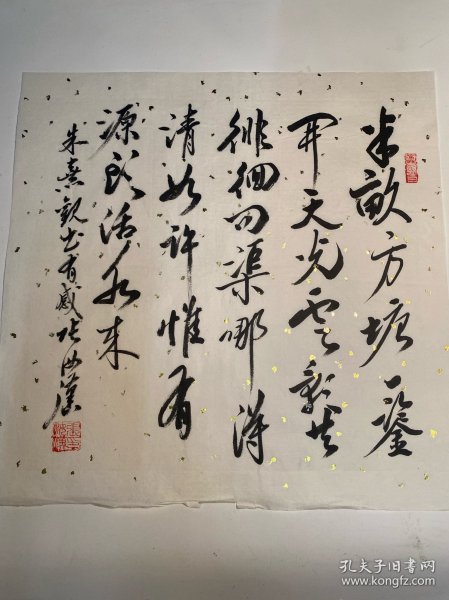 半畝方塘一鉴
開天光雲影共
徘徊问渠哪得
清如许惟有
源头活水来
朱熹觀书有感
孔夫子旧书网
www.kongfz.com